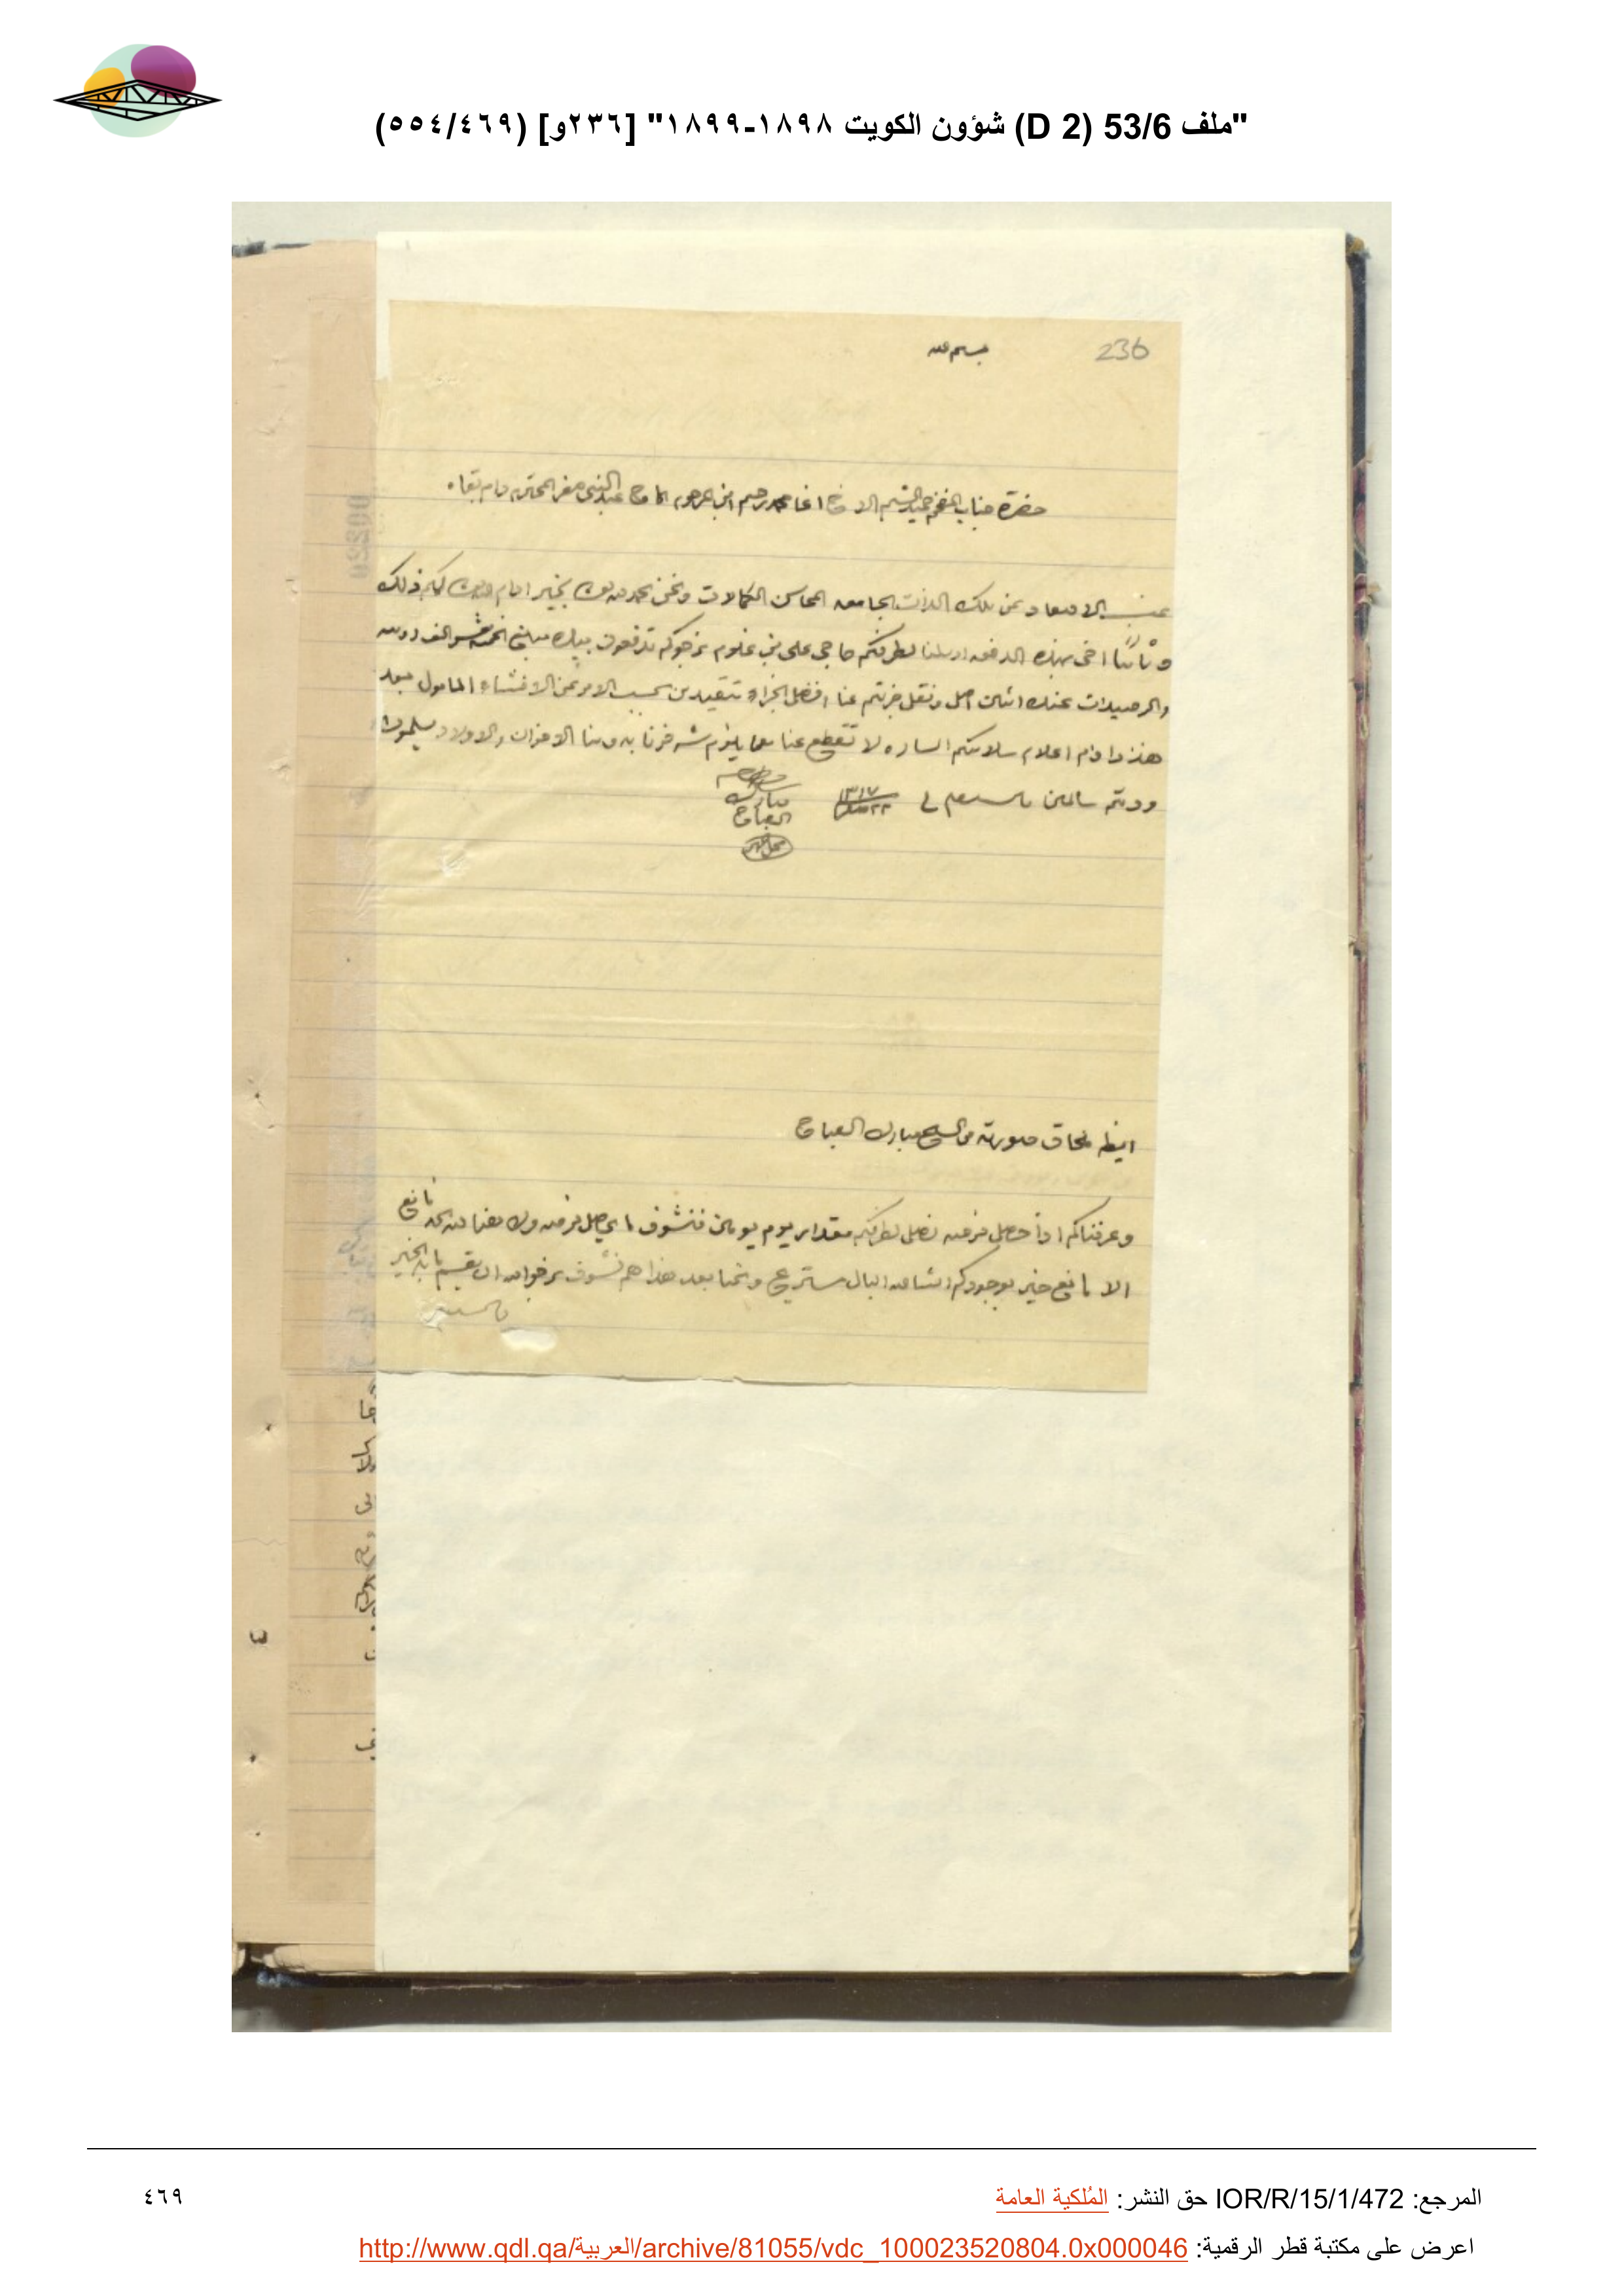 "ملف 53/6 (D 2) شؤون الكويت ١٨٩٨-١٨٩٩" [٢٣٦و] (٥٥٤/٤٦٩)
236
بسم الله
حضرة جناب الافخم الاخ اغا محمد رحيم ابن المرحوم الحاج عبد النبي صفر المحترم دام بقاه
الابعاد عن تلك الذات الجامعه المحاسن الكمالات ونحن نحمد الله بخير ادام لكم ذلك
وثانيا اخي بهذه الدفعه ارسلنا لطرفكم حاجي علي بن غلوم نرجوكم تدفعون بيده مبلغ الف روبيه
والرصيدات عندك اثنين اصل ونقل جزيتم عنا افضل الجزاء بحسب الامر عن الافشاء المامول
هذا وادام اعلام سلامتكم الساره لا تقطع عنا بما يلزم شرفونا به ومنا الاخوان والاولاد يسلمون
ودمتم سالمين والسلام في ٢٢ ١٣١٧
مبارك
الصباح
محل مهر
ايضا لحاق صورته من الشيخ مبارك الصباح
وعرفناكم اذا حصل فرصه نصل لطرفكم مقدار يوم يومين فنشوف ما يحصل فرصه ولله الحمد مانع
الا مانع خير بوجودكم انشالله البال مستريح بعد هذا هم نشوف نرجو الله ان بالخير
والسلام
المرجع: IOR/R/15/1/472 حق النشر: المُلكية العامة
٤٦٩
اعرض على مكتبة قطر الرقمية: http://www.qdl.qa/العربية/archive/81055/vdc_100023520804.0x000046